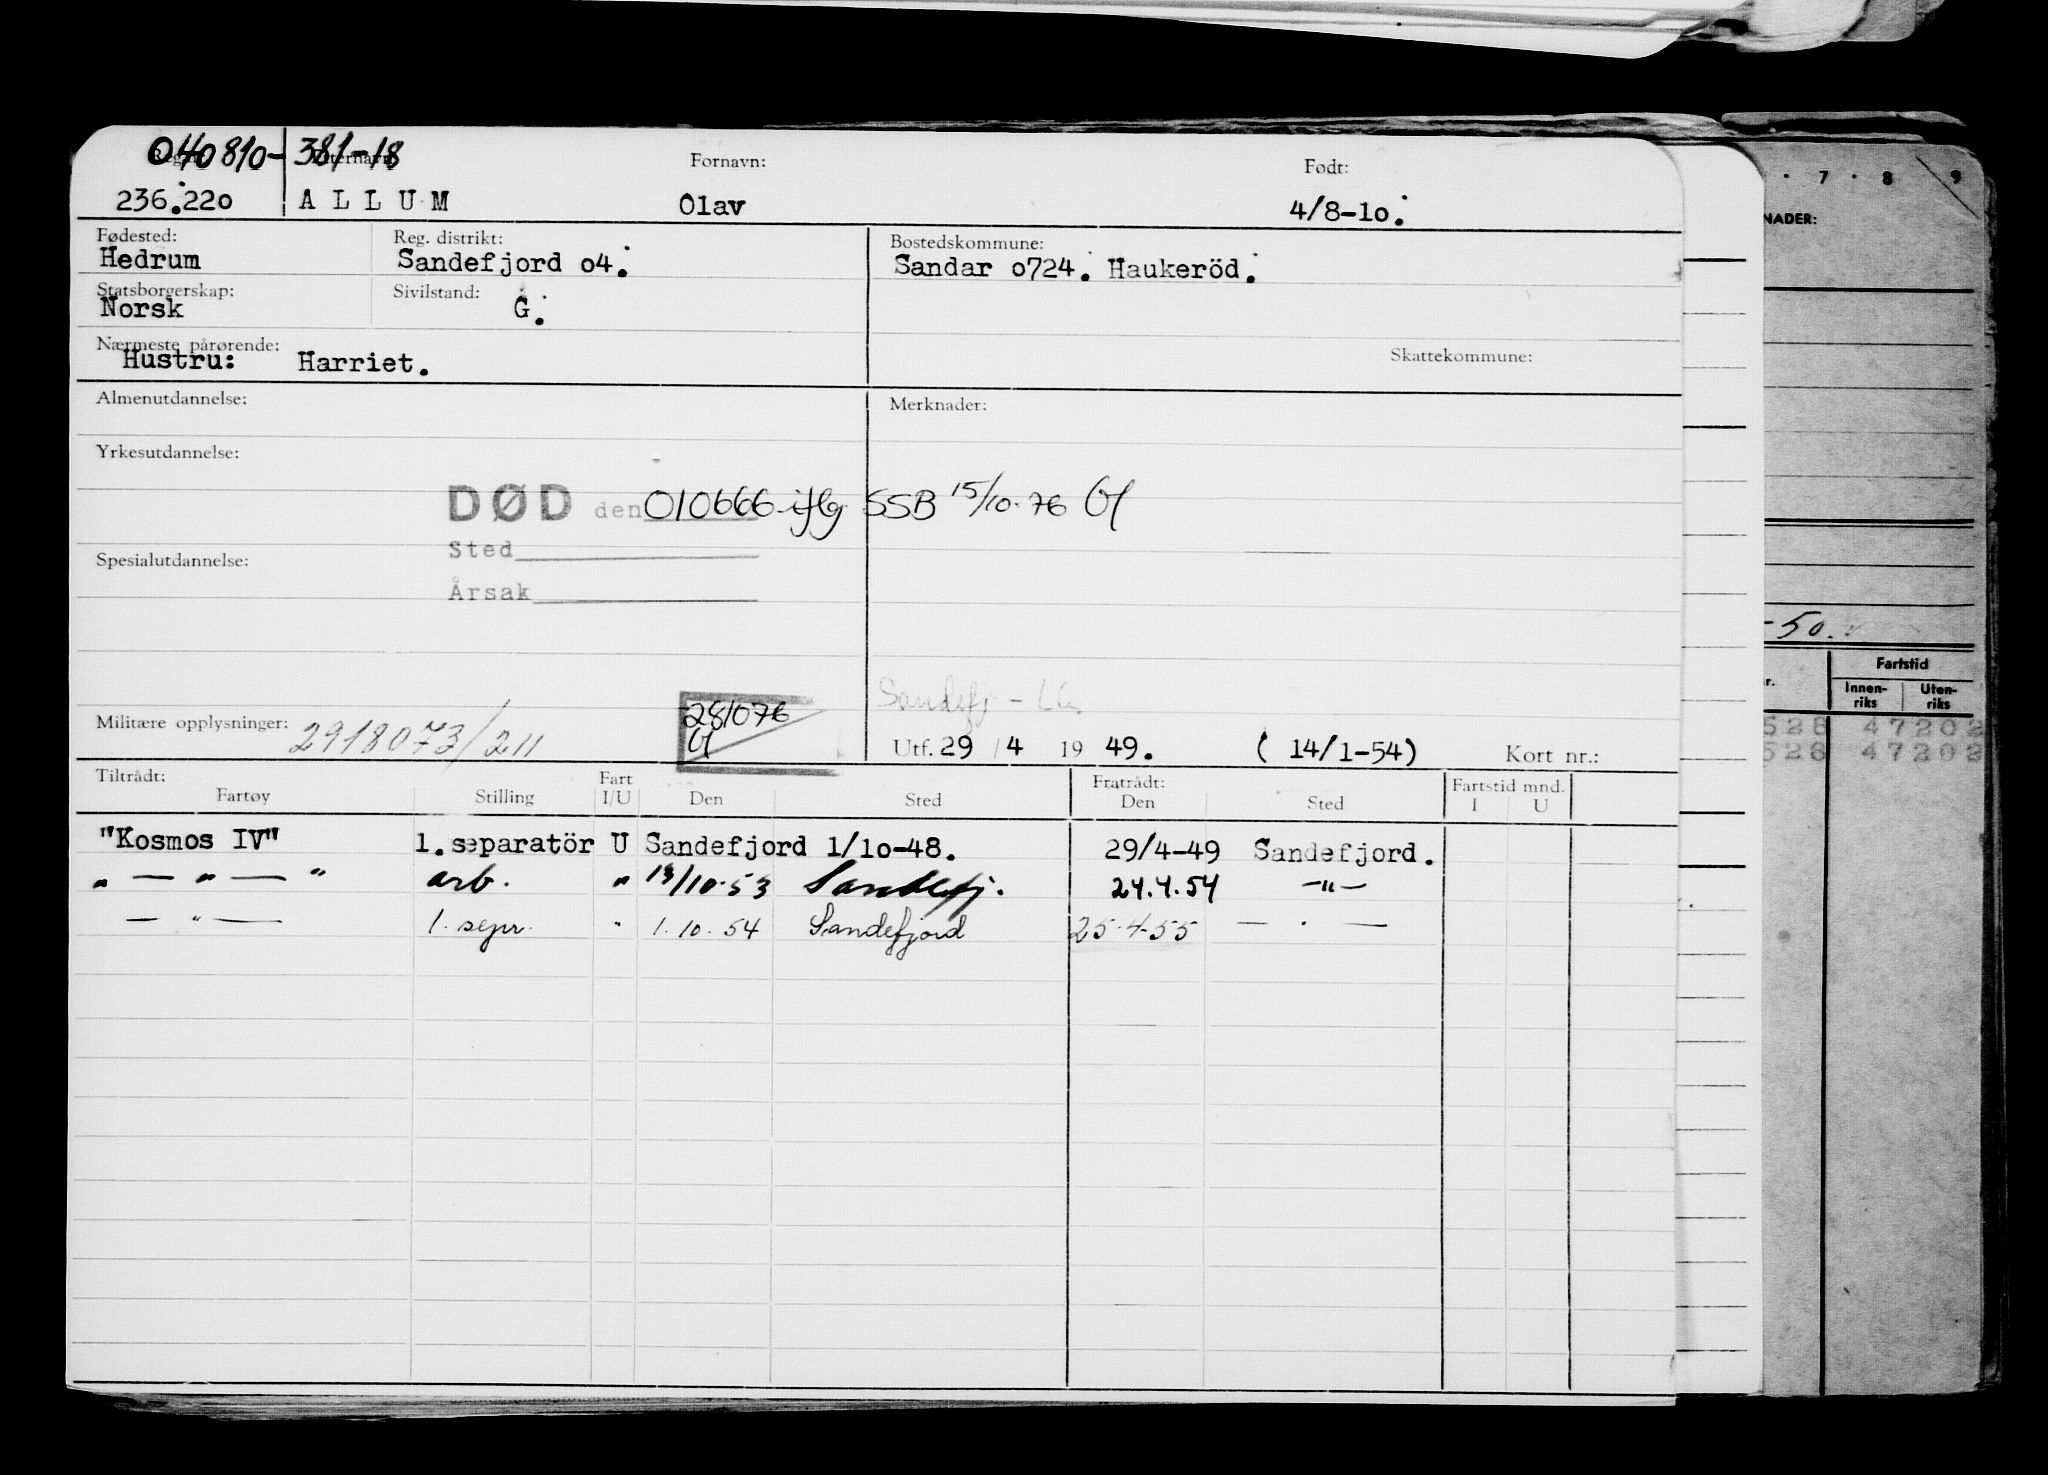 040810-381-18
Regnr. Etternavn: Fornavn: Født:
236.220 ALLUM Olav 4/8-1o.
Fødested: Reg. distrikt: Bostedskommune:
Hedrum Sandefjord o4. Sandar o724. Haukeröd.
Statsborgerskap: Sivilstand:
Norsk G.
Nærmeste pårørende: Skattekommune:
Hustru: Harriet.
Almenutdannelse: Merknader:
Yrkesutdannelse:
DØD den 010666 iflg. SSB 15/10-76
Sted
Spesialutdannelse:
Årsak
Sandefj -
281076
Militære opplysninger: 2918073/211
Utf. 29 / 4 19 49. ( 14/1-54) Kort nr.:
Tiltrådt: Fart Fratrådt: Fartstid mnd.
Fartøy Stilling I/U Den Sted Den Sted I U
"Kosmos IV" 1.separatör U Sandefjord 1/1o-48. 29/4-49 Sandefjord.
" — " — " arb. " 13/10-53 Sandefj. 24.4.54 —"—
— " — 1. sepr. " 1.10.54 Sandefjord 25-4-55 — . —
. 7 . 8 9
NADER:
-50.
r. Fartstid
Innen-riks Uten-riks
528 47202
528 47202